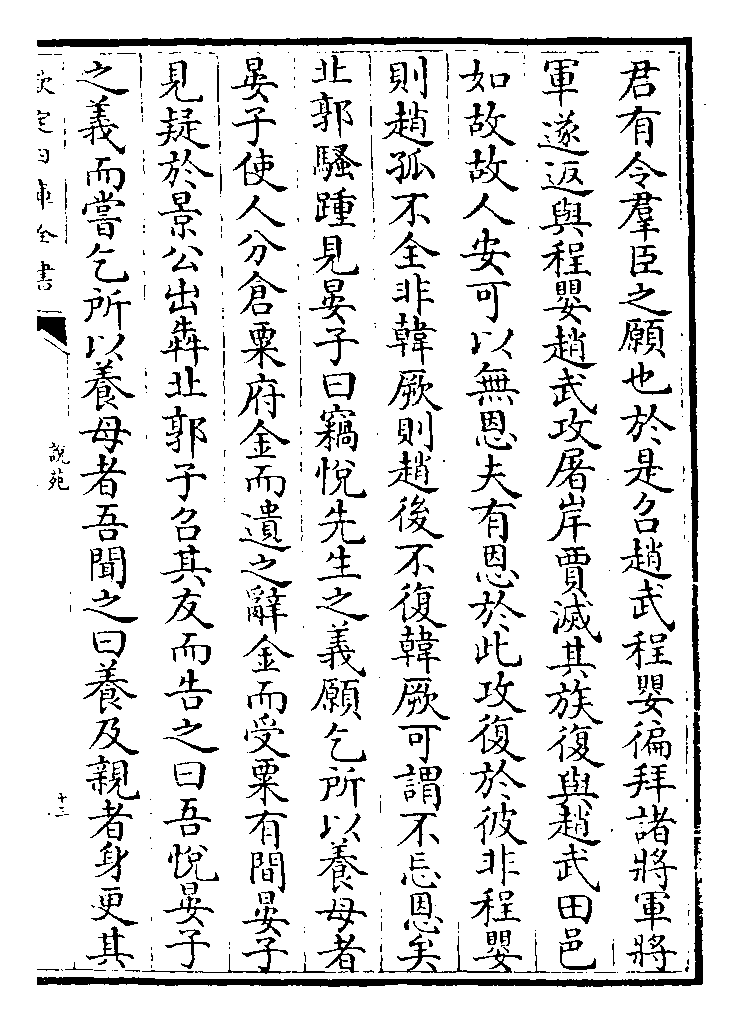 君有令羣臣之願也於是召趙武程嬰徧拜諸將軍將
軍遂返與程嬰趙武攻屠岸賈滅其族復與趙武田邑
如故故人安可以無恩夫有恩於此攻復於彼非程嬰
則趙孤不全非韓厥則趙後不復韓厥可謂不忘恩矣
北郭騷踵見晏子曰竊悅先生之義願乞所以養母者
晏子使人分倉粟府金而遺之辭金而受粟有間晏子
見疑於景公出犇北郭子召其友而告之曰吾悅晏子
之義而嘗乞所以養母者吾聞之曰養及親者身更其
欽定四庫全書
說苑
十三